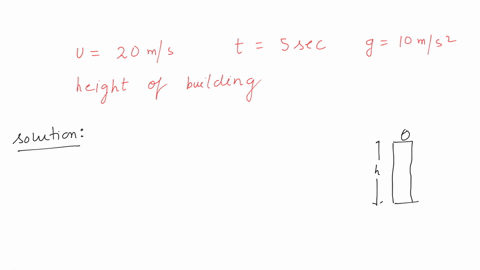 u = 20 m/s t = 5 sec g = 10 m/s2
height of building
solution:
h